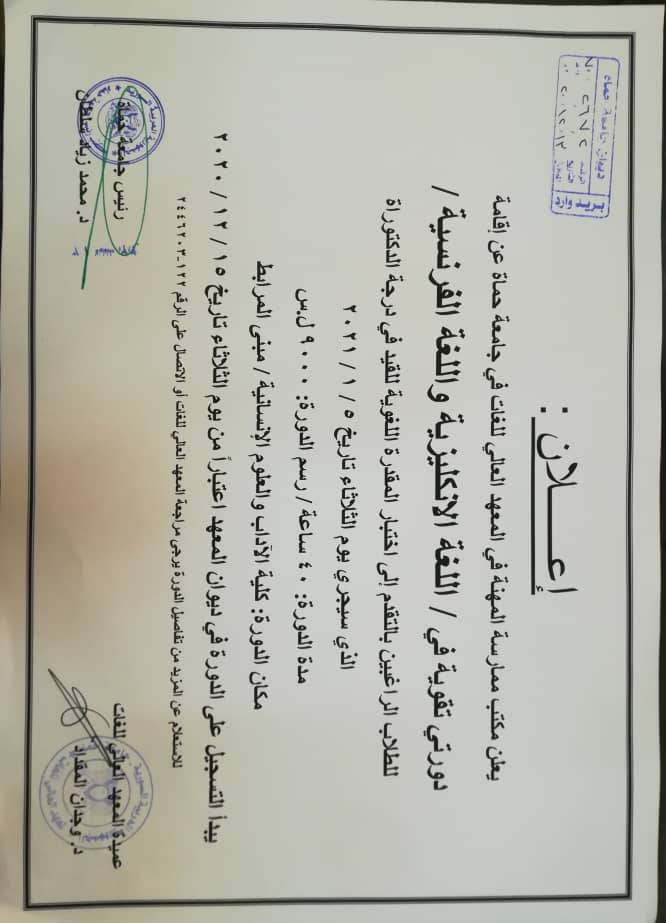 ديوان جامعة حماة
بريد وارد
إعـــلان :
يعلن مكتب ممارسة المهنة في المعهد العالي للغات في جامعة حماة عن إقامة
دورتي تقوية في / اللغة الانكليزية واللغة الفرنسية /
للطلاب الراغبين بالتقدم إلى اختبار المقدرة اللغوية للقيد في درجة الدكتوراة
الذي سيجري يوم الثلاثاء تاريخ ٥ / ١ / ٢٠٢١
مدة الدورة: ٤٠ ساعة / رسم الدورة: ٩٠٠٠ ل.س
مكان الدورة: كلية الآداب والعلوم الإنسانية / مبنى المرابط
يبدأ التسجيل على الدورة في ديوان المعهد اعتباراً من يوم الثلاثاء تاريخ ١٥ / ١٢ / ٢٠٢٠
للاستعلام عن المزيد من تفاصيل الدورة يرجى مراجعة المعهد العالي للغات أو الاتصال على الرقم ١٢٢-٢٤٤٦٢٠٣
عميدة المعهد العالي للغات
د. وجدان المقداد
رئيس جامعة حماة
د. محمد زياد سلطان